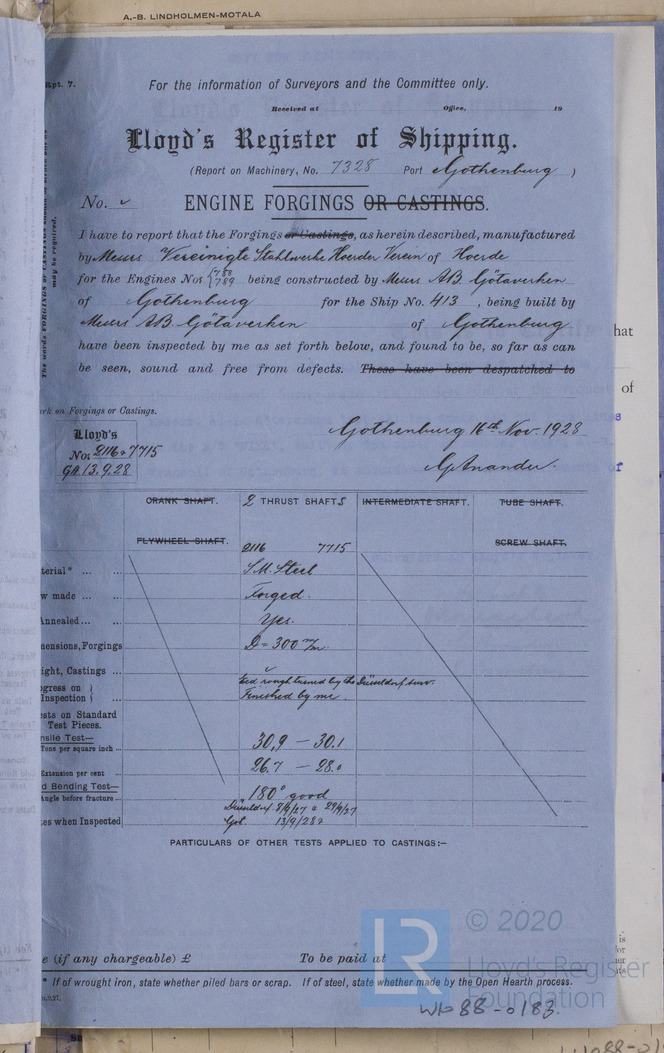 A.-B. LINDHOLMEN-MOTALA
Rpt. 7.
For the information of Surveyors and the Committee only.
Received at Office, 19
Lloyd's Register of Shipping.
(Report on Machinery, No. 7328 Port Gothenburg )
No. ENGINE FORGINGS OR CASTINGS.
I have to report that the Forgings or Castings, as herein described, manufactured
by Messrs Vereinigte Stahlwerke Hoerder Verein of Hoerde
for the Engines Nos 788 789 being constructed by Messrs AB. Götaverken
of Gothenburg for the Ship No. 413, being built by
Messrs AB. Götaverken of Gothenburg
have been inspected by me as set forth below, and found to be, so far as can
be seen, sound and free from defects. These have been despatched to
The words FORGINGS or CASTINGS
may be required.
hat
of
rk on Forgings or Castings.
Lloyd's
Nos 2116 & 7715
GA. 13.9.28
Gothenburg 16th Nov. 1928
CRANK SHAFT. 2 THRUST SHAFTS INTERMEDIATE SHAFT. TUBE SHAFT.
FLYWHEEL SHAFT. SCREW SHAFT.
2116 7715
terial* ... S.M. Steel
w made ... Forged.
Annealed ... Yes.
mensions, Forgings D = 300 m/m
ight, Castings ...
ogress on Inspection ... rough turned by the Düsseldorf surv.
Finished by me.
sts on Standard
Test Pieces.
nsile Test—
Tons per square inch ... 30,9 — 30.1
Extension per cent ... 26.7 — 28.0
d Bending Test—
Angle before fracture ... 180° good
Düsseldorf 8/9/27 & 29/9/27
es when Inspected Got. 13/9/28
PARTICULARS OF OTHER TESTS APPLIED TO CASTINGS:—
e (if any chargeable) £ To be paid at
* If of wrought iron, state whether piled bars or scrap. If of steel, state whether made by the Open Hearth process.
LR
© 2020
Lloyd's Register
Foundation
W1088-0183